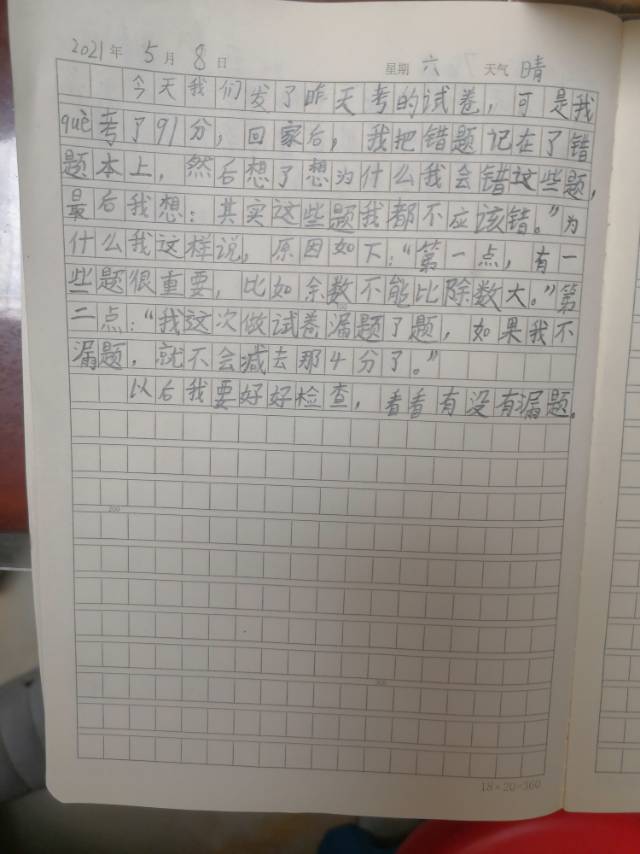 2021年 5月 8日 星期 六 天气 晴
今天我们发了昨天考的试卷，可是我
què考了91分，回家后，我把错题记在了错
题本上，然后想了想为什么我会错这些题，
最后我想：其实这些题我都不应该错。”为
什么我这样说，原因如下：“第一点，有一
些题很重要，比如余数不能比除数大。”第
二点：“我这次做试卷漏题了题，如果我不
漏题，就不会减去那4分了。”
以后我要好好检查，看看有没有漏题。
200
300
18×20=360